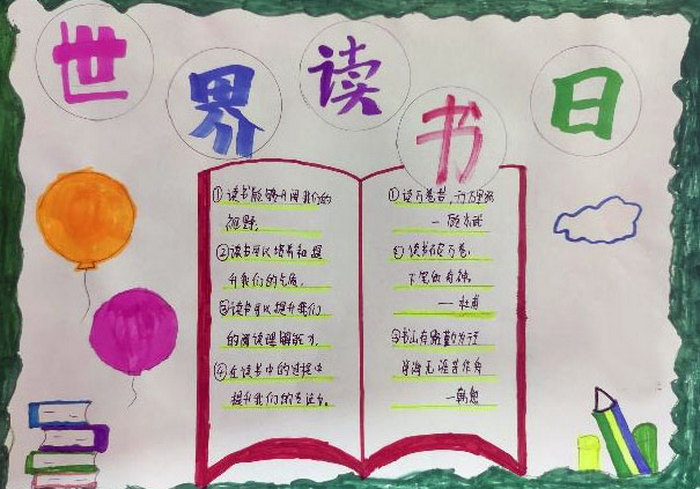 世界读书日
①读书能够开阔我们的
视野。
②读书可以培养和提
升我们的气质。
③读书可以提升我们
的阅读理解能力。
④在读书中的过程中
提升我们的
①读万卷书，行万里路
②读书破万卷，
下笔如有神。
——杜甫
③书山有路勤为径
学海无涯苦作舟
—韩愈